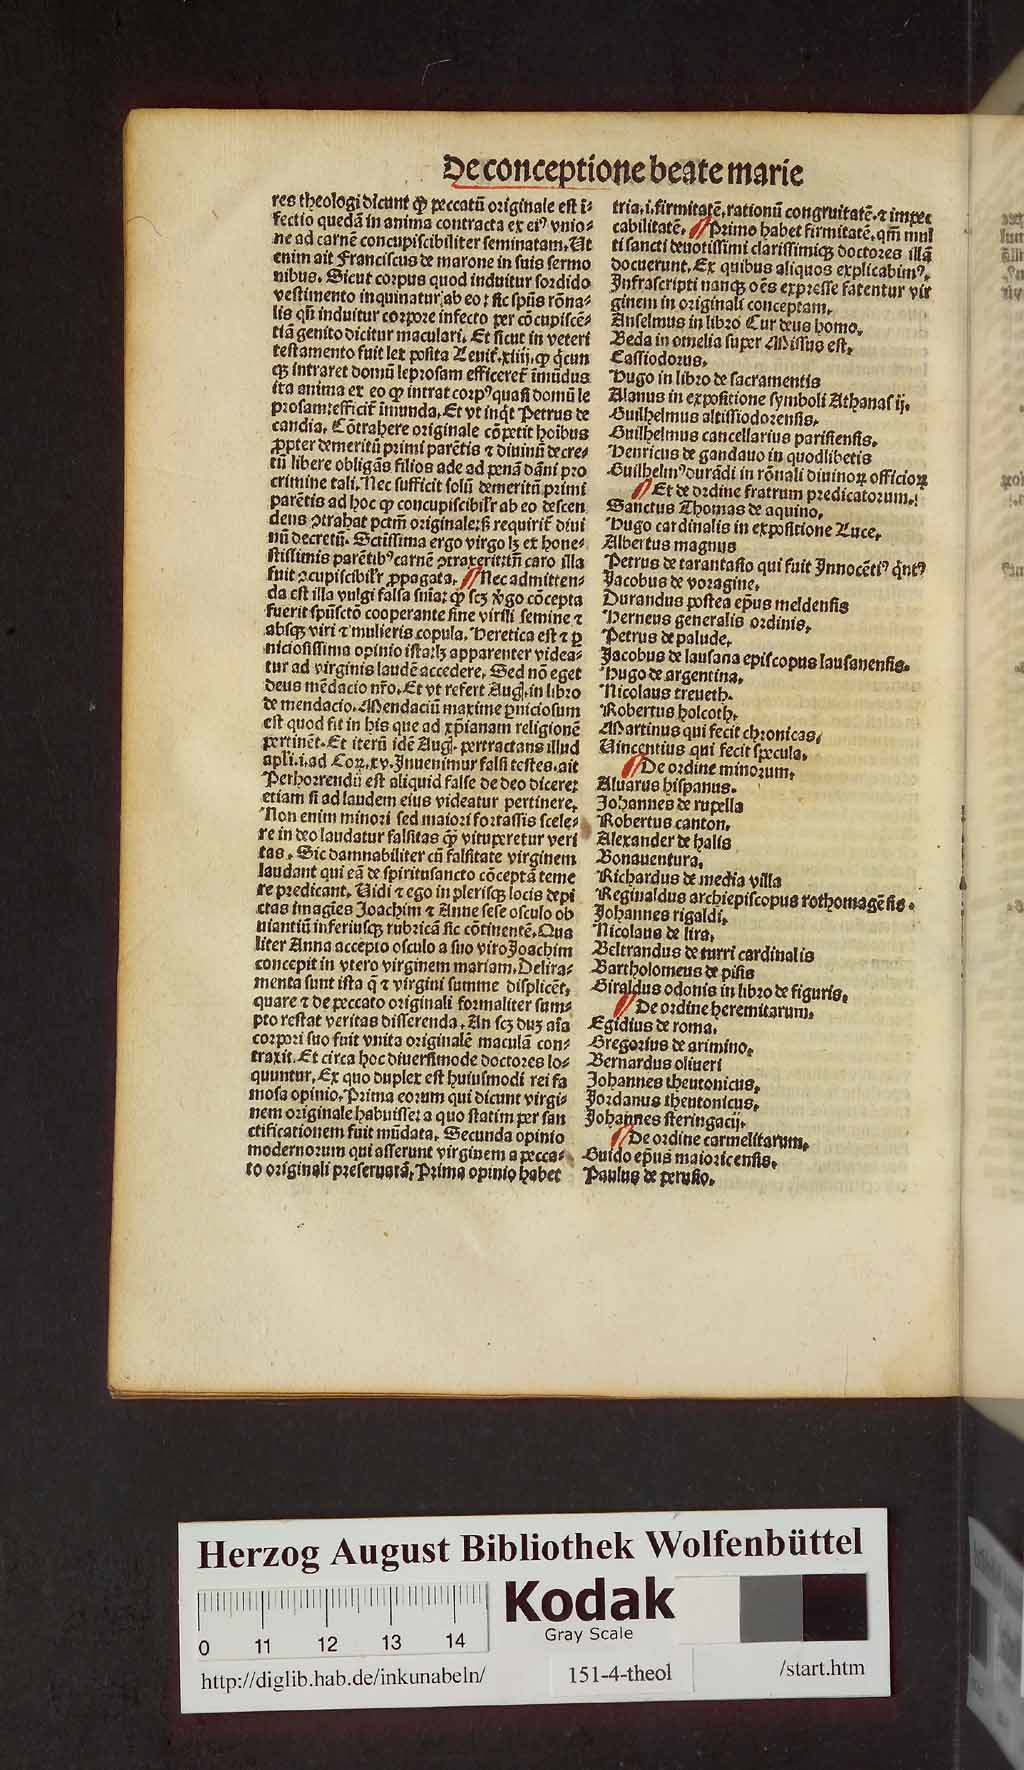 De conceptione beate marie
res theologi dicunt ꝙ peccatū originale est ī-
fectio quedā in anima contracta ex eiꝰ vnio-
ne ad carnē concupiscibiliter seminatam. Ut
enim ait Franciscus de marone in suis sermo
nibus. Sicut corpus quod induitur sordido
vestimento inquinatur ab eo: sic spūs rōna-
lis qn̄ induitur corpore infecto per cōcupiscē-
tiā genito dicitur maculari. Et sicut in veteri
testamento fuit lex posita Leuit̄. xiiij. ꝙ q̇cun
qꝫ intraret domū leprosam efficeret̄ īmūdus
ita anima ex eo ꝙ intrat corpꝰ quasi domū le
prosam: efficit̄ īmunda. Et vt inq̇t Petrus de
candia. Cōtrahere originale cōpetit hoībus
ꝓpter demeritū primi parētis ⁊ diuinū decre-
tū libere obligās filios ade ad penā dāni pro
crimine tali. Nec sufficit solū demeritū primi
parētis ad hoc ꝙ concupiscibilr̄ ab eo descen
dens ꝯtrahat pctm̄ originale: sꝫ requirit̄ diui
nū decretū. Sctīssima ergo virgo lꝫ ex hone-
stissimis parētibꝰ carnē ꝯtraxerit: tn̄ caro illa
fuit ꝯcupiscibilr̄ ꝓpagata. Nec admitten-
da est illa vulgi falsa sn̄ia: ꝙ scꝫ v̇go cōcepta
fuerit spūsctō cooperante sine virili semine ⁊
absqꝫ viri ⁊ mulieris copula. Heretica est ⁊ ꝑ
niciosissima opinio ista: lꝫ apparenter videa-
tur ad virginis laudē accedere. Sed nō eget
deus mēdacio nr̄o. Et vt refert Aug. in libro
de mendacio. Mendaciū maxime ꝑniciosum
est quod fit in his que ad xp̄ianam religionē
pertinēt. Et iterū idē Aug. pertractans illud
apli. i. ad Coꝝ. xv. Inuenimur falsi testes. ait
Perhorrendū est aliquid false de deo dicere:
etiam si ad laudem eius videatur pertinere.
Non enim minori sed maiori fortassis scele-
re in deo laudatur falsitas ꝙ̄ vituperetur veri
tas. Sic damnabiliter cū falsitate virginem
laudant qui eā de spiritusancto cōceptā teme
re predicant. Uidi ⁊ ego in plerisqꝫ locis depi
ctas imagīes Joachim ⁊ Anne sese osculo ob
uiantiū inferiusqꝫ rubricā sic cōtinentē. Qua
liter Anna accepto osculo a suo viro Joachim
concepit in vtero virginem mariam. Delira-
menta sunt ista q̄ ⁊ virgini summe displicēt.
quare ⁊ de peccato originali formaliter sum-
pto restat veritas disserenda. An scꝫ duꝫ aīa
corpori suo fuit vnita originalē maculā con-
traxit. Et circa hoc diuersimode doctores lo-
quuntur. Ex quo duplex est huiusmodi rei fa
mosa opinio. Prima eorum qui dicunt virgi-
nem originale habuisse: a quo statim per san
ctificationem fuit mūdata. Secunda opinio
modernorum qui asserunt virginem a pecca-
to originali preseruatā. Prima opinio habet
tria. i. firmitatē. rationū congruitatē. ⁊ impec
cabilitatē. Primo habet firmitatē. qm̄ mul
ti sancti deuotissimi clarissimiqꝫ doctores illā
docuerunt. Ex quibus aliquos explicabimꝰ.
Infrascripti nanqꝫ oēs expresse fatentur vir
ginem in originali conceptam.
Anselmus in libro Cur deus homo.
Beda in omelia super Missus est.
Cassiodorus.
Hugo in libro de sacramentis
Alanus in expositione symboli Athanasij.
Guilhelmus altissiodorensis.
Guilhelmus cancellarius parisiensis.
Henricus de gandauo in quodlibetis
Guilhelmꝰ durādi in rōnali diuinoꝝ officioꝝ
Et de ordine fratrum predicatorum.
Sanctus Thomas de aquino.
Hugo cardinalis in expositione Luce.
Albertus magnus
Petrus de tarantasio qui fuit Innocētiꝰ q̇ntꝰ
Jacobus de voragine.
Durandus postea ep̄us meldensis
Herueus generalis ordinis.
Petrus de palude.
Jacobus de lausana episcopus lausanensis.
Hugo de argentina.
Nicolaus treueth.
Robertus holcoth.
Martinus qui fecit chronicas.
Uincentius qui fecit specula.
De ordine minorum.
Aluarus hispanus.
Johannes de rupella
Robertus canton.
Alexander de halis
Bonauentura.
Richardus de media villa
Reginaldus archiepiscopus rothomagēsis.
Johannes rigaldi.
Nicolaus de lira.
Beltrandus de turri cardinalis
Bartholomeus de pisis
Giraldus odonis in libro de figuris.
De ordine heremitarum.
Egidius de roma.
Gregorius de arimino.
Bernardus oliueri
Johannes theutonicus.
Jordanus theutonicus.
Johannes steringacij.
De ordine carmelitarum.
Guido ep̄us maioricensis.
Paulus de perusio.
Herzog August Bibliothek Wolfenbüttel
Kodak
Gray Scale
0 11 12 13 14
http://diglib.hab.de/inkunabeln/
151-4-theol
/start.htm